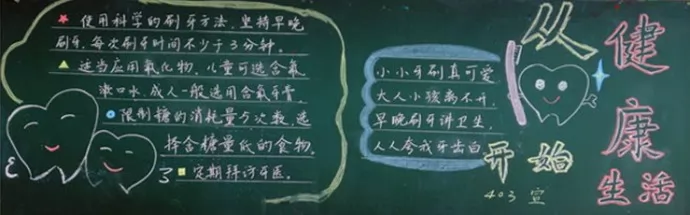 使用科学的刷牙方法,坚持早晚
刷牙,每次刷牙时间不少于3分钟。
适当应用氟化物,儿童可选含氟
漱口水,成人一般选用含氟牙膏。
限制糖的消耗量与次数,选
择含糖量低的食物。
定期拜访牙医。
小小牙刷真可爱
大人小孩离不开,
早晚刷牙讲卫生,
人人夸我牙齿白
健康生活
从
开始
403 宣